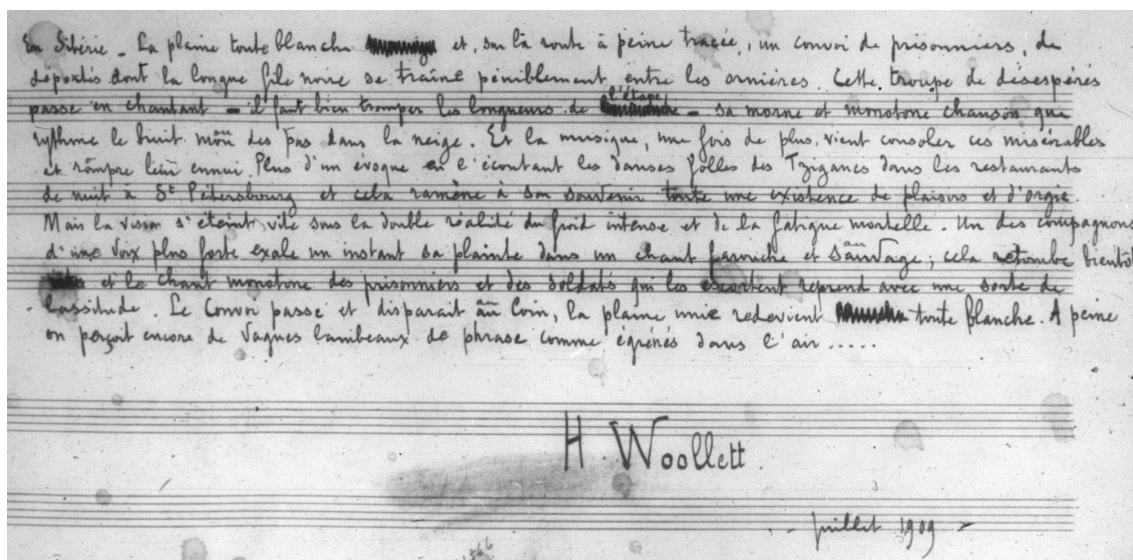 En Sibérie _ La plaine toute blanche et, sur la route à peine tracée, un convoi de prisonniers, de
déportés dont la longue file noire se traîne péniblement entre les ornières. Cette troupe de désespérés
passe en chantant – il faut bien tromper les longueurs de l'étape – sa morne et monotone chanson que
rythme le bruit mou des pas dans la neige. Et la musique, une fois de plus, vient consoler ces misérables
et rompre leur ennui. Plus d'un évoque en l'écoutant les danses folles des Tziganes dans les restaurants
de nuit à St Pétersbourg et cela ramène à son souvenir toute une existence de plaisirs et d'orgie.
Mais la vision s'éteint vite sous la double réalité du froid intense et de la fatigue mortelle. Un des compagnons
d'une voix plus forte exale un instant sa plainte dans un chant farouche et sauvage; cela retombe bientôt
et le chant monotone des prisonniers et des soldats qui les escortent reprend avec une sorte de
lassitude. Le Convoi passe et disparait au loin, la plaine unie redevient toute blanche. A peine
on perçoit encore de vagues lambeaux de phrase comme égrénés dans l'air .....
H. Woollett.
– juillet 1909 –